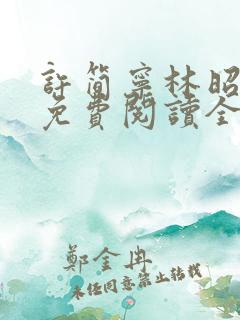 許簡寧林昭
免費閱讀全
鄭金冉
未經同意禁止轉載